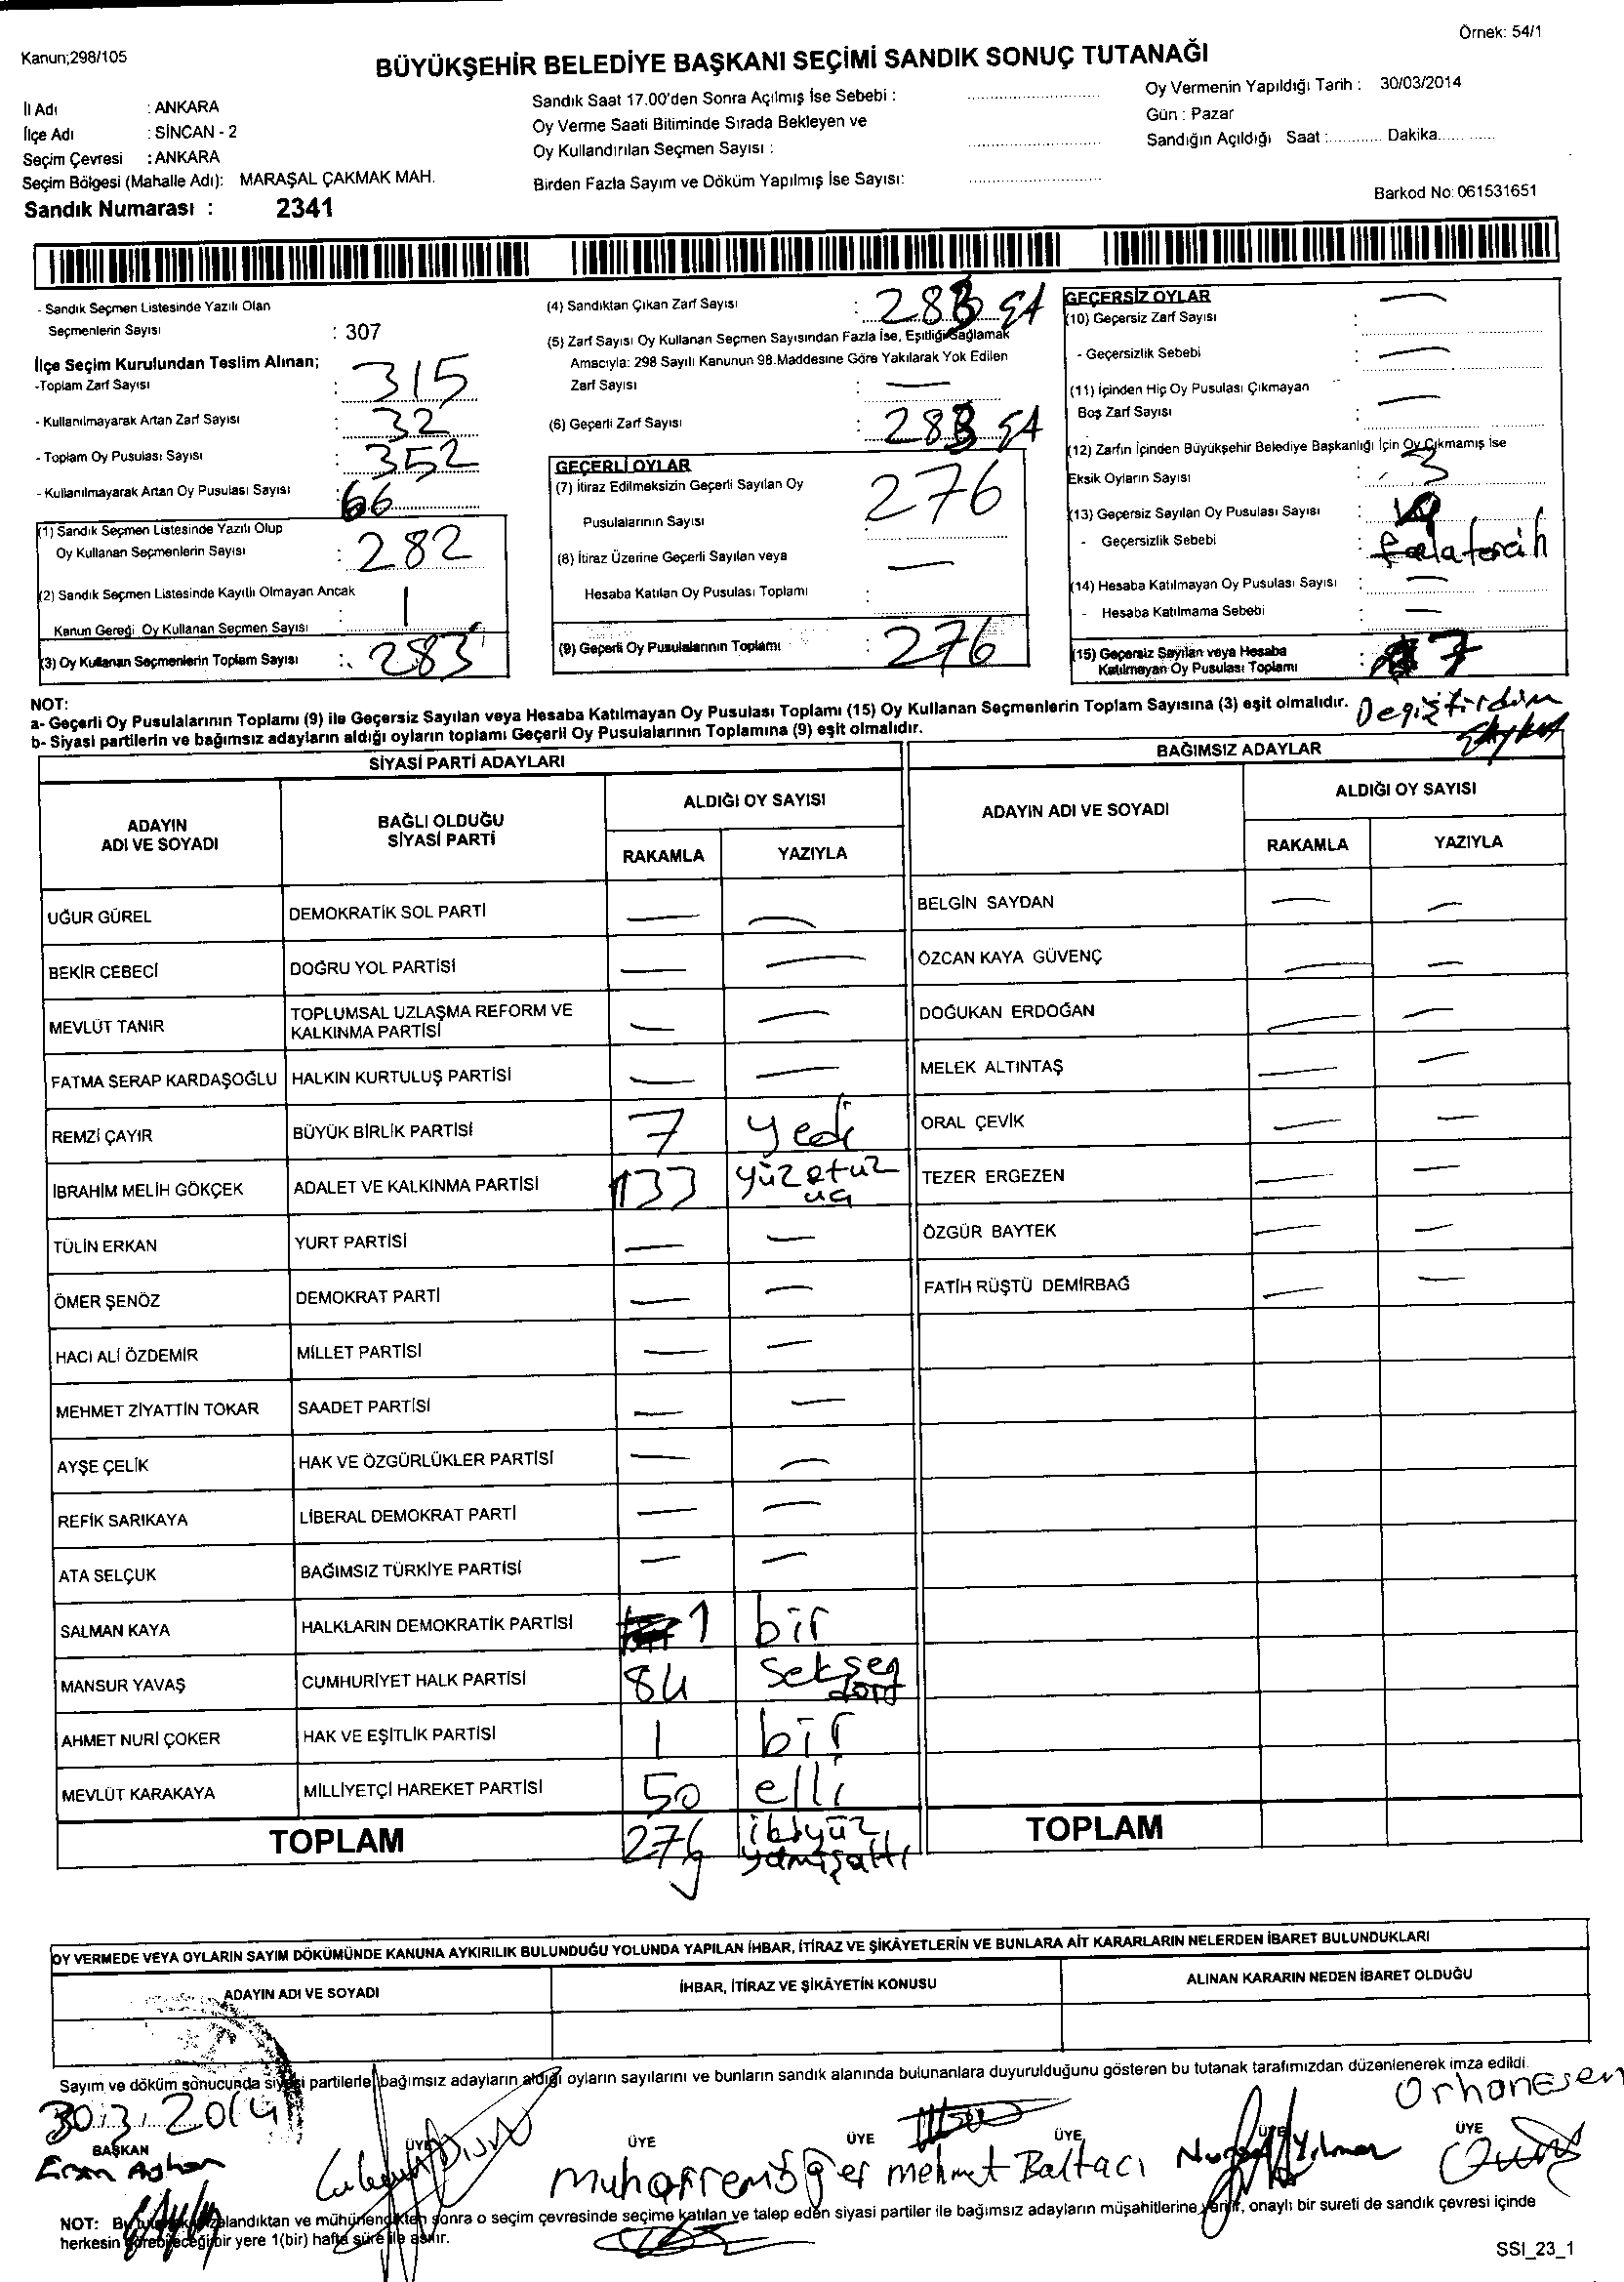 Örnek: 54/1
Kanun;298/105
BÜYÜKŞEHİR BELEDİYE BAŞKANI SEÇİMİ SANDIK SONUÇ TUTANAĞI
İl Adı : ANKARA
İlçe Adı : SİNCAN - 2
Seçim Çevresi : ANKARA
Seçim Bölgesi (Mahalle Adı): MARAŞAL ÇAKMAK MAH.
Sandık Numarası : 2341
Sandık Saat 17.00'den Sonra Açılmış İse Sebebi :
Oy Verme Saati Bitiminde Sırada Bekleyen ve
Oy Kullandırılan Seçmen Sayısı :
Birden Fazla Sayım ve Döküm Yapılmış İse Sayısı:
Oy Vermenin Yapıldığı Tarih : 30/03/2014
Gün : Pazar
Sandığın Açıldığı Saat :............ Dakika..............
Barkod No: 061531651
- Sandık Seçmen Listesinde Yazılı Olan
Seçmenlerin Sayısı : 307
İlçe Seçim Kurulundan Teslim Alınan;
-Toplam Zarf Sayısı : 315
- Kullanılmayarak Artan Zarf Sayısı : 32
- Toplam Oy Pusulası Sayısı : 352
- Kullanılmayarak Artan Oy Pusulası Sayısı : 66
(1) Sandık Seçmen Listesinde Yazılı Olup
Oy Kullanan Seçmenlerin Sayısı : 282
(2) Sandık Seçmen Listesinde Kayıtlı Olmayan Ancak
Kanun Gereği Oy Kullanan Seçmen Sayısı : 1
(3) Oy Kullanan Seçmenlerin Toplam Sayısı : 283
(4) Sandıktan Çıkan Zarf Sayısı : 283
(5) Zarf Sayısı Oy Kullanan Seçmen Sayısından Fazla İse, Eşitliği Sağlamak
Amacıyla: 298 Sayılı Kanunun 98.Maddesine Göre Yakılarak Yok Edilen
Zarf Sayısı : —
(6) Geçerli Zarf Sayısı : 283
GEÇERLİ OYLAR
(7) İtiraz Edilmeksizin Geçerli Sayılan Oy
Pusulalarının Sayısı : 276
(8) İtiraz Üzerine Geçerli Sayılan veya
Hesaba Katılan Oy Pusulası Toplamı : —
(9) Geçerli Oy Pusulalarının Toplamı : 276
GEÇERSİZ OYLAR
(10) Geçersiz Zarf Sayısı : —
- Geçersizlik Sebebi : —
(11) İçinden Hiç Oy Pusulası Çıkmayan
Boş Zarf Sayısı : —
(12) Zarfın İçinden Büyükşehir Belediye Başkanlığı İçin Oy Çıkmamış İse
Eksik Oyların Sayısı : 3
(13) Geçersiz Sayılan Oy Pusulası Sayısı :
- Geçersizlik Sebebi : fazla tercih
(14) Hesaba Katılmayan Oy Pusulası Sayısı : —
- Hesaba Katılmama Sebebi : —
(15) Geçersiz Sayılan veya Hesaba
Katılmayan Oy Pusulası Toplamı : 7
NOT:
a- Geçerli Oy Pusulalarının Toplamı (9) ile Geçersiz Sayılan veya Hesaba Katılmayan Oy Pusulası Toplamı (15) Oy Kullanan Seçmenlerin Toplam Sayısına (3) eşit olmalıdır.
Değiştirdim
b- Siyasi partilerin ve bağımsız adayların aldığı oyların toplamı Geçerli Oy Pusulalarının Toplamına (9) eşit olmalıdır.
SİYASİ PARTİ ADAYLARI
ADAYIN ADI VE SOYADI
BAĞLI OLDUĞU SİYASİ PARTİ
ALDIĞI OY SAYISI
RAKAMLA YAZIYLA
UĞUR GÜREL DEMOKRATİK SOL PARTİ — —
BEKİR CEBECİ DOĞRU YOL PARTİSİ — —
MEVLÜT TANIR TOPLUMSAL UZLAŞMA REFORM VE KALKINMA PARTİSİ — —
FATMA SERAP KARDAŞOĞLU HALKIN KURTULUŞ PARTİSİ — —
REMZİ ÇAYIR BÜYÜK BİRLİK PARTİSİ 7 yedi
İBRAHİM MELİH GÖKÇEK ADALET VE KALKINMA PARTİSİ 133 yüzotuz üç
TÜLİN ERKAN YURT PARTİSİ — —
ÖMER ŞENÖZ DEMOKRAT PARTİ — —
HACI ALİ ÖZDEMİR MİLLET PARTİSİ — —
MEHMET ZİYATTİN TOKAR SAADET PARTİSİ — —
AYŞE ÇELİK HAK VE ÖZGÜRLÜKLER PARTİSİ — —
REFİK SARIKAYA LİBERAL DEMOKRAT PARTİ — —
ATA SELÇUK BAĞIMSIZ TÜRKİYE PARTİSİ — —
SALMAN KAYA HALKLARIN DEMOKRATİK PARTİSİ 1 bir
MANSUR YAVAŞ CUMHURİYET HALK PARTİSİ 84 seksen dört
AHMET NURİ ÇOKER HAK VE EŞİTLİK PARTİSİ 1 bir
MEVLÜT KARAKAYA MİLLİYETÇİ HAREKET PARTİSİ 50 elli
TOPLAM 276 ikiyüz yamişaltı
BAĞIMSIZ ADAYLAR
ADAYIN ADI VE SOYADI
ALDIĞI OY SAYISI
RAKAMLA YAZIYLA
BELGİN SAYDAN — —
ÖZCAN KAYA GÜVENÇ — —
DOĞUKAN ERDOĞAN — —
MELEK ALTINTAŞ — —
ORAL ÇEVİK — —
TEZER ERGEZEN — —
ÖZGÜR BAYTEK — —
FATİH RÜŞTÜ DEMİRBAĞ — —
TOPLAM
OY VERMEDE VEYA OYLARIN SAYIM DÖKÜMÜNDE KANUNA AYKIRILIK BULUNDUĞU YOLUNDA YAPILAN İHBAR, İTİRAZ VE ŞİKÂYETLERİN VE BUNLARA AİT KARARLARIN NELERDEN İBARET BULUNDUKLARI
ADAYIN ADI VE SOYADI
İHBAR, İTİRAZ VE ŞİKÂYETİN KONUSU
ALINAN KARARIN NEDEN İBARET OLDUĞU
Sayım ve döküm sonucunda siyasi partilerle bağımsız adayların aldığı oyların sayılarını ve bunların sandık alanında bulunanlara duyurulduğunu gösteren bu tutanak tarafımızdan düzenlenerek imza edildi.
30.3.2014
Orhan Esen
BAŞKAN ÜYE ÜYE ÜYE ÜYE ÜYE
mehmet Baltacı
Yılmaz
NOT: Bu tutanak imzalandıktan ve mühürlendikten sonra o seçim çevresinde seçime katılan ve talep eden siyasi partiler ile bağımsız adayların müşahitlerine verilir, onaylı bir sureti de sandık çevresi içinde
herkesin görebileceği bir yere 1(bir) hafta süre ile asılır.
SSI_23_1